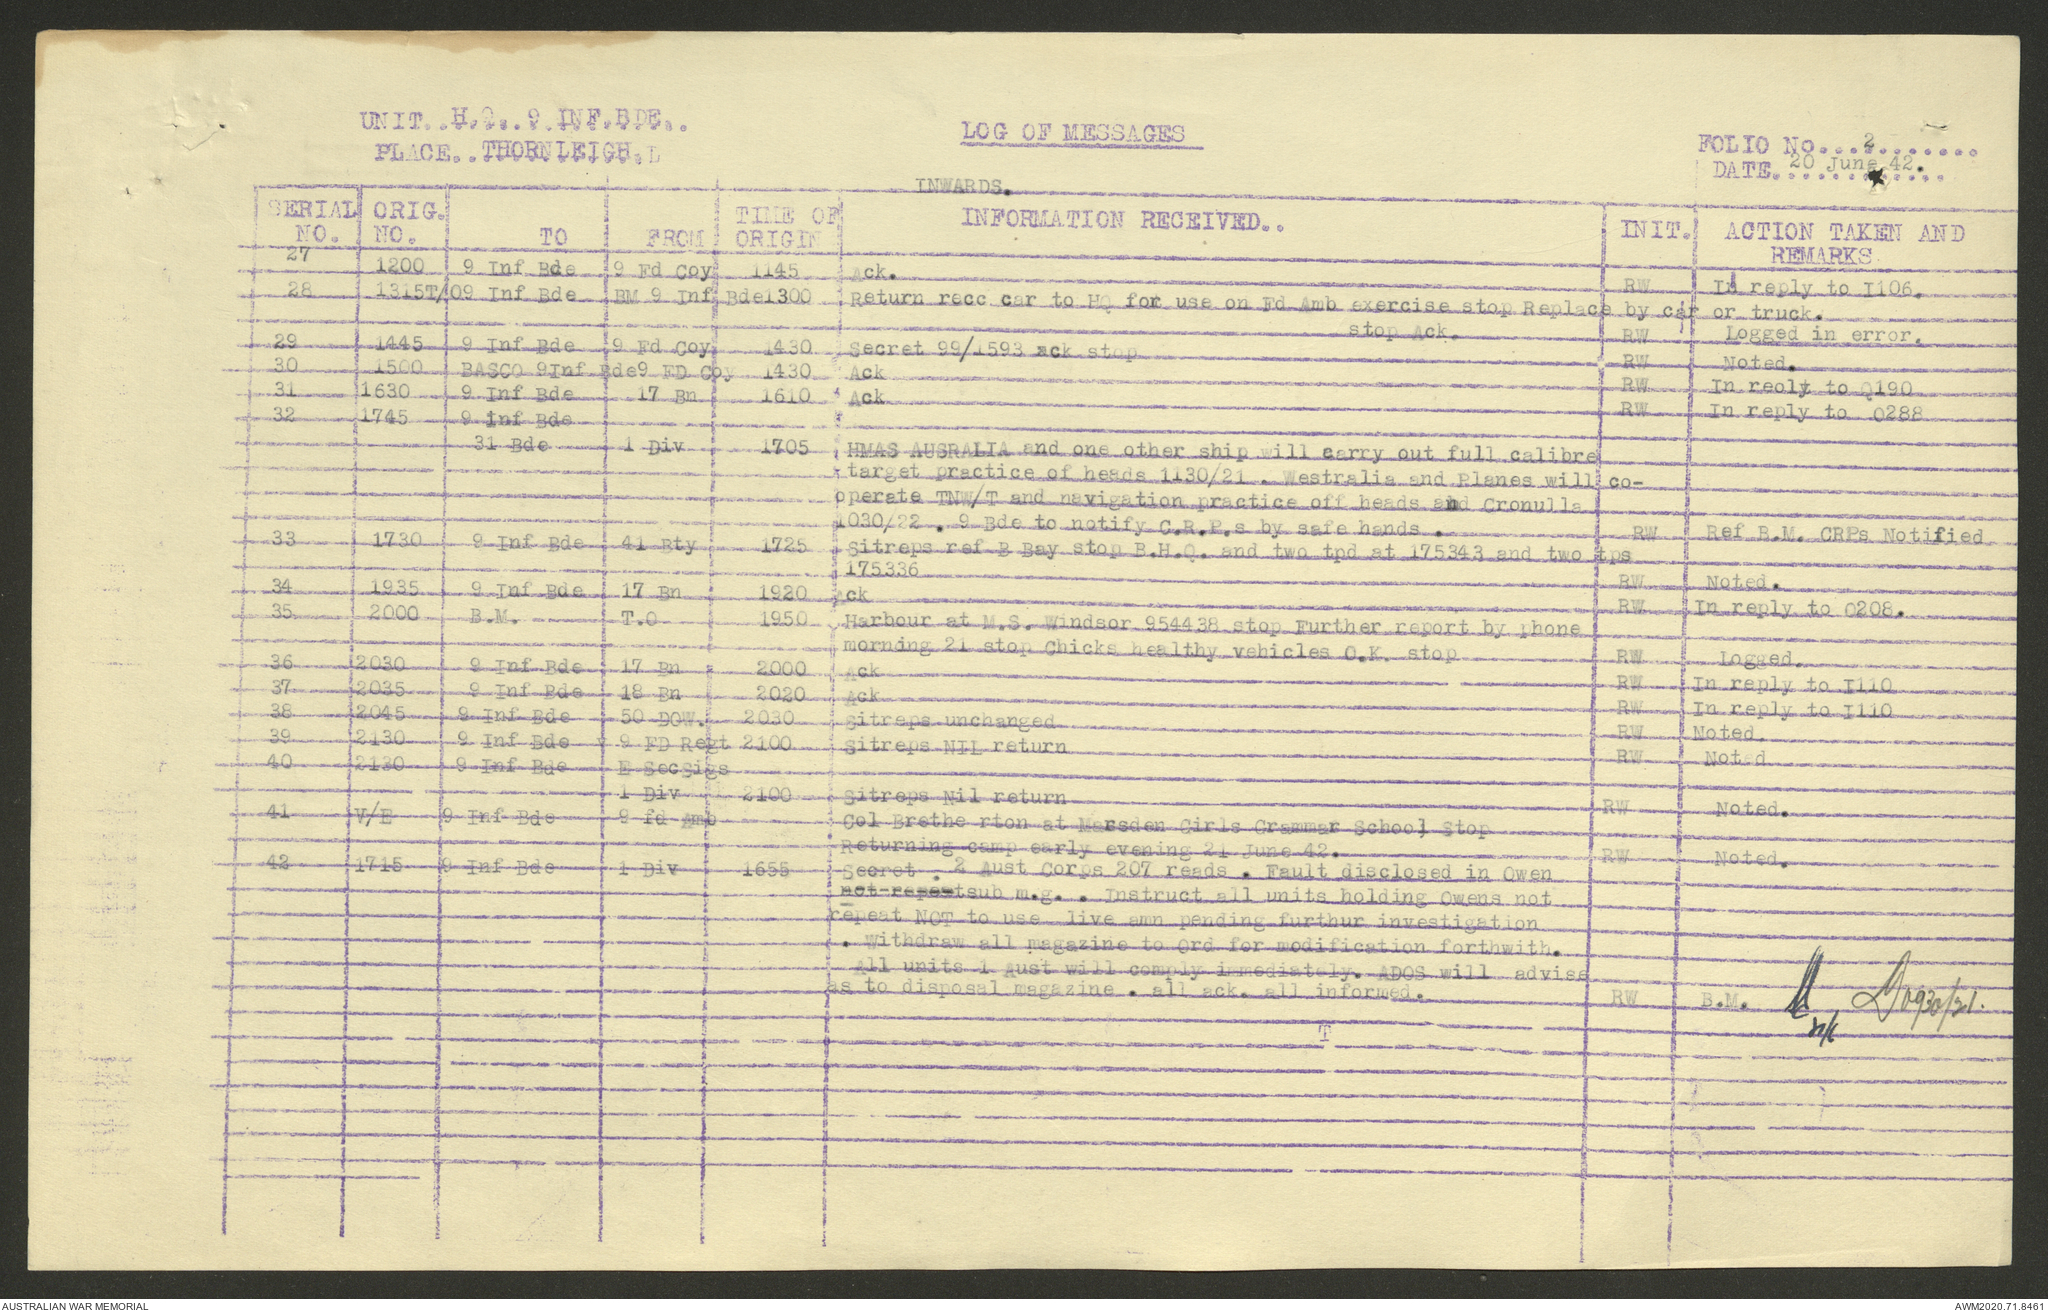 UNIT. .H.Q. .9 INF.BDE. .
PLACE. .THORNLEIGH.
LOG OF MESSAGES
FOLIO No. . . 2 . . . . . . .
DATE. 20 June 42.
INWARDS.
SERIAL NO. ORIG. NO. TO FROM TIME OF ORIGIN INFORMATION RECEIVED. . INIT. ACTION TAKEN AND REMARKS
27 1200 9 Inf Bde 9 Fd Coy 1145 Ack. RW In reply to I106.
28 1315T/O 9 Inf Bde BM 9 Inf Bde 1300 Return recc car to HQ for use on Fd Amb exercise stop Replace by car or truck.
stop Ack. RW Logged in error.
29 1445 9 Inf Bde 9 Fd Coy 1430 Secret 99/1593 ack stop RW Noted.
30 1500 BASCO 9Inf Bde 9 FD Coy 1430 Ack RW In reoly to Q190
31 1630 9 Inf Bde 17 Bn 1610 Ack RW In reply to O288
32 1745 9 Inf Bde
31 Bde 1 Div 1705 HMAS AUSRALIA and one other ship will carry out full calibre
target practice of heads 1130/21 . Westralia and Planes will co-
operate TNW/T and navigation practice off heads and Cronulla
1030/22 . 9 Bde to notify C.R.P.s by safe hands . RW Ref B.M. CRPs Notified
33 1730 9 Inf Bde 41 Bty 1725 Sitreps ref B Bay stop B.H.Q. and two tpd at 175343 and two tps
175336 RW Noted.
34 1935 9 Inf Bde 17 Bn 1920 Ack RW In reply to O208.
35 2000 B.M. T.O 1950 Harbour at M.S. Windsor 954438 stop Further report by phone
morning 21 stop Chicks healthy vehicles O.K. stop RW Logged.
36 2030 9 Inf Bde 17 Bn 2000 Ack RW In reply to I110
37 2035 9 Inf Bde 18 Bn 2020 Ack RW In reply to I110
38 2045 9 Inf Bde 50 DOW. 2030 Sitreps unchanged RW Noted.
39 2130 9 Inf Bde 9 FD Regt 2100 Sitreps NIL return RW Noted
40 2130 9 Inf Bde E SecSigs
1 Div 2100 Sitreps Nil return RW Noted.
41 V/E 9 Inf Bde 9 fd Amb Col Brethe rton at Marsden Girls Grammar School Stop
Returning camp early evening 21 June 42. RW Noted.
42 1715 9 Inf Bde 1 Div 1655 Secret . 2 Aust Corps 207 reads . Fault disclosed in Owen
not repeat sub m.g. . Instruct all units holding Owens not
repeat NOT to use live amn pending furthur investigation
. Withdraw all magazine to Ord for modification forthwith.
All units 1 Aust will comply immediately. ADOS will advise
as to disposal magazine . all ack. all informed. RW B.M. 0930/21.
21/6
T
AUSTRALIAN WAR MEMORIAL
AWM2020.71.8461